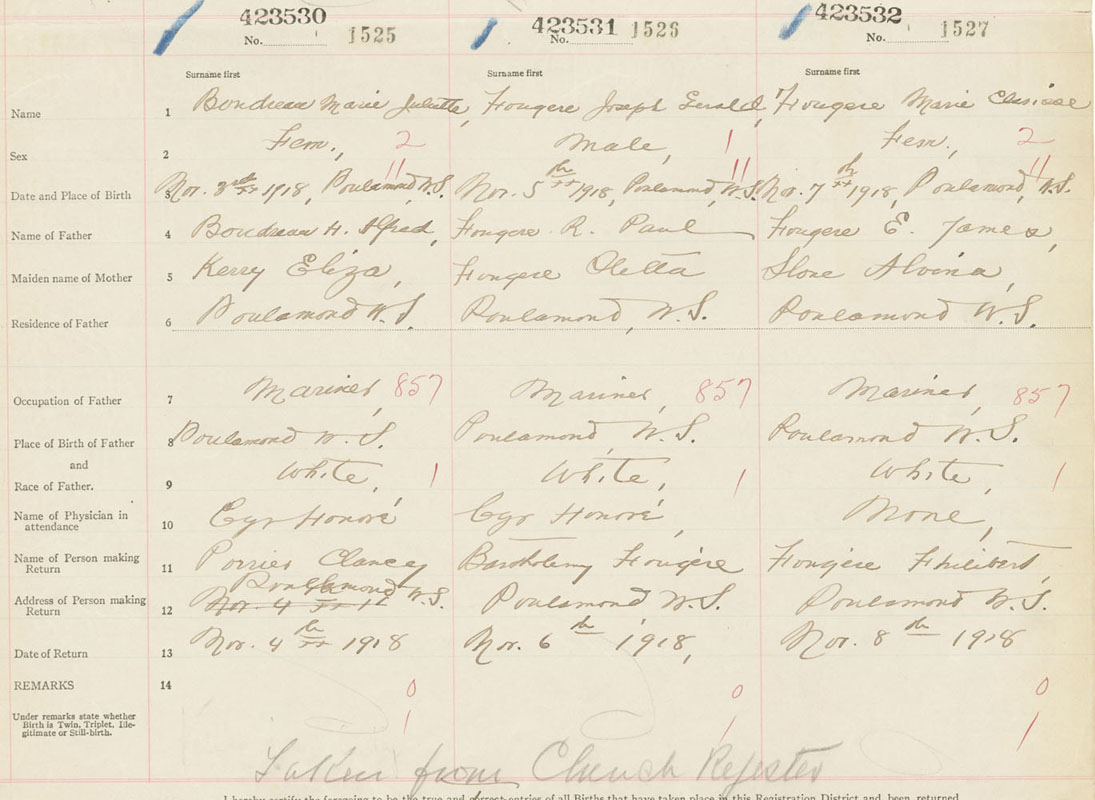 423530 423531 423532
No. 1525 No. 1526 No. 1527
Surname first Surname first Surname first
Name 1 Boudreau Marie Juliette, Fougere Joseph Gerald, Fougere Marie
Sex 2 Fem., 2 Male, 1 Fem., 2
11 11 11
Date and Place of Birth 3 Nov. 3rd 1918, Poulamond, W.S. Nov. 5th 1918, Poulamond, W.S. Nov. 7th 1918, Poulamond, W.S.
Name of Father 4 Boudreau H. Alfred, Fougere R. Paul Fougere E. James,
Maiden name of Mother 5 Kerry Eliza, Fougere Oletta Slone Alvina,
Residence of Father 6 Poulamond W.S. Poulamond, W.S. Poulamond W.S.
Occupation of Father 7 Mariner, 857 Mariner, 857 Mariner, 857
Place of Birth of Father 8 Poulamond W.S. Poulamond, W.S. Poulamond W.S.
and
Race of Father. 9 White, 1 White, 1 White, 1
Name of Physician in
attendance 10 Cyr Honoré Cyr Honoré None,
Name of Person making
Return 11 Clancey Bartholemy Fougère Fougère Philibert,
Poulamond W.S.
Address of Person making
Return 12 Nov. 4 Poulamond W.S. Poulamond W.S.
Date of Return 13 Nov. 4th 1918 Nov. 6th 1918, Nov. 8th 1918
REMARKS 14 0 0 0
Under remarks state whether
Birth is Twin, Triplet, Ille-
gitimate or Still-birth. 1 1 1
Taken from Church Register
I hereby certify the foregoing to be the true and correct entries of all Births that have taken place in this Registration District and been returned